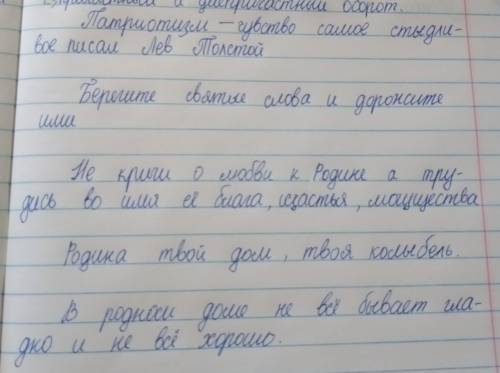 и деепричастный оборот.
Патриотизм – чувство самое стыдли-
вое писал Лев Толстой
Берегите святые слова и дорожите
ими
Не кричи о любви к Родине а тру-
дись во имя её блага, счастья, могущества
Родина твой дом, твоя колыбель.
В родном доме не всё бывает гла-
дко и не всё хорошо.